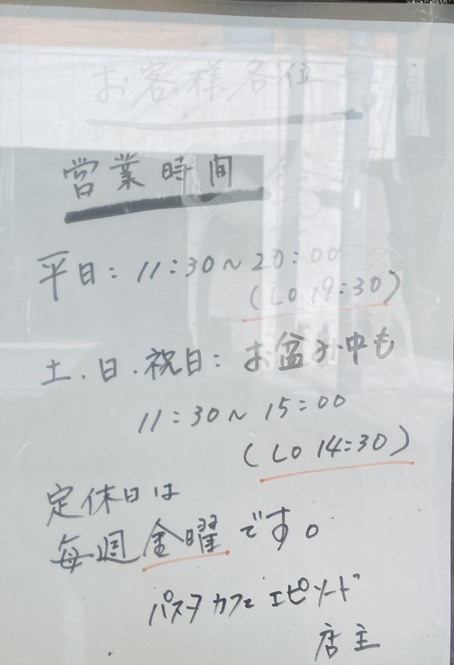 お客様各位
営業時間
平日：11:30～20:00
(LO 19:30)
土、日、祝日：お盆み中も
11:30～15:00
(LO 14:30)
定休日は
毎週金曜です。
パスタカフェエピソード
店主